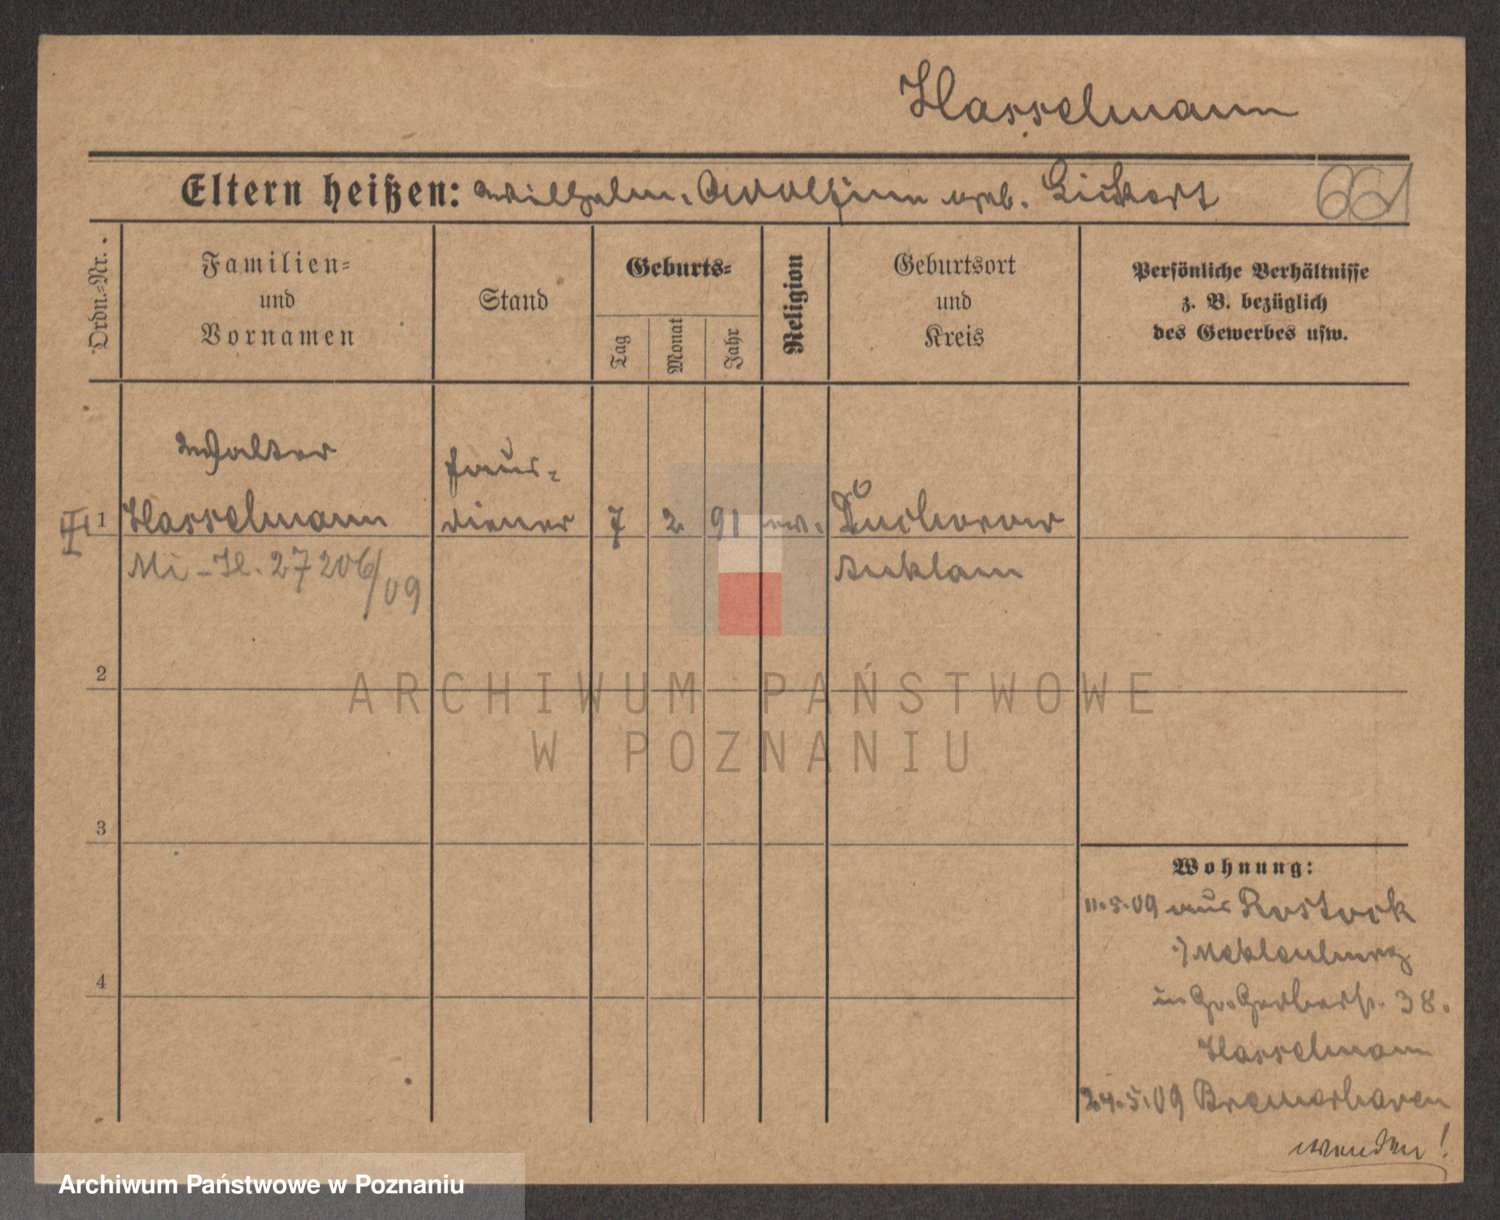 Hasselmann
Eltern heißen: Wilhelm, Adolfine geb. Lickert
661
Ordn.-Nr.
Familien-
und
Vornamen
Stand
Geburts-
Tag
Monat
Jahr
Religion
Geburtsort
und
Kreis
Persönliche Verhältnisse
z. B. bezüglich
des Gewerbes usw.
Walter
Haus-
1 Hasselmann diener 7 2 91 ev. Ducherow
Mi-Sl. 27206/09 Anklam
2
ARCHIWUM PAŃSTWOWE
W POZNANIU
3
Wohnung:
11.5.09 aus Rostock
Meklenburg
4
in Gr. Gerberst. 38.
Hasselmann
24.5.09 Bremerhaven
wenden!
Archiwum Państwowe w Poznaniu